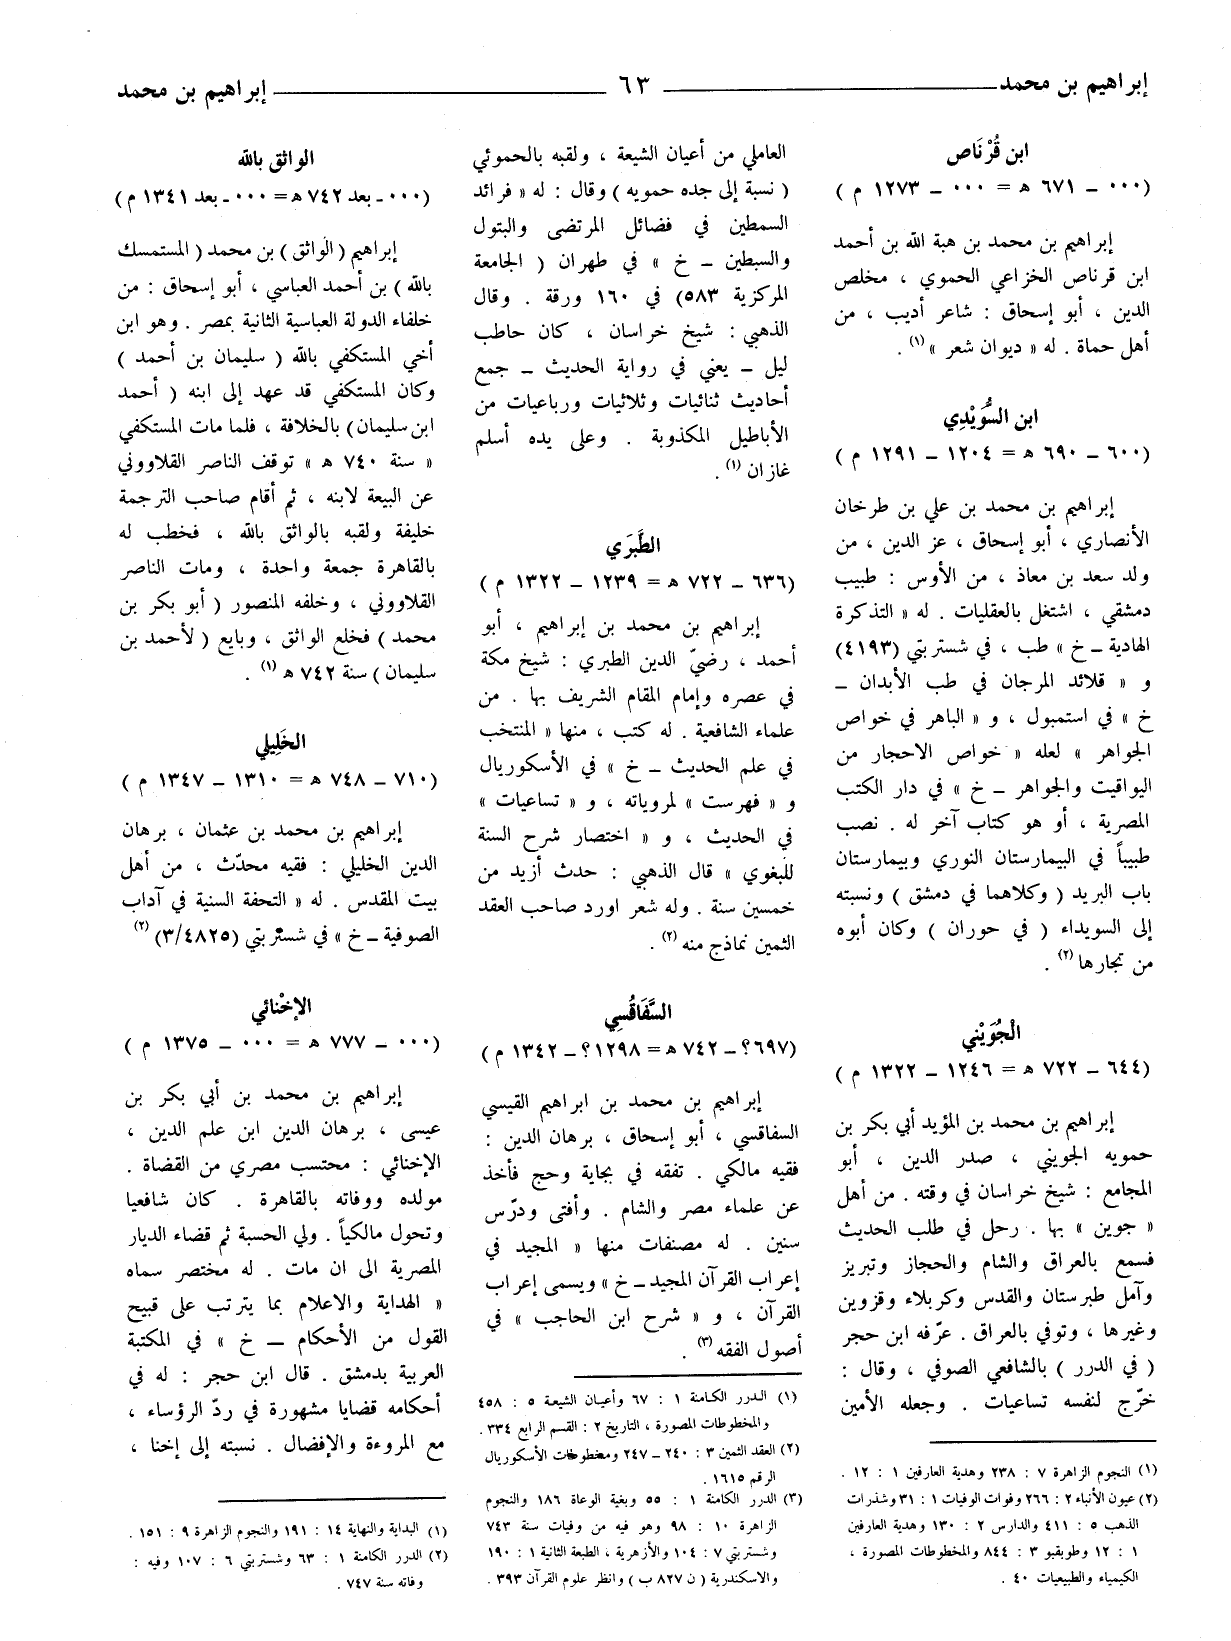 إبراهيم بن محمد ــــــ ٦٣ ــــــ إبراهيم بن محمد
ابن قُرْنَاص
(٠٠٠ ـ ٦٧١ هـ = ٠٠٠ ـ ١٢٧٣ م)
إبراهيم بن محمد بن هبة الله بن أحمد
ابن قرناص الخزاعي الحموي ، مخلص
الدين ، أبو إسحاق : شاعر أديب ، من
أهل حماة . له « ديوان شعر » (١) .
ابن السُّوَيْدِي
(٦٠٠ ـ ٦٩٠ هـ = ١٢٠٤ ـ ١٢٩١ م)
إبراهيم بن محمد بن علي بن طرخان
الأنصاري ، أبو إسحاق ، عز الدين ، من
ولد سعد بن معاذ ، من الأوس : طبيب
دمشقي ، اشتغل بالعقليات . له « التذكرة
الهادية ـ خ » طب ، في شستربتي (٤١٩٣)
و « قلائد المرجان في طب الأبدان ـ
خ » في استمبول ، و « الباهر في خواص
الجواهر » لعله « خواص الاحجار من
اليواقيت والجواهر ـ خ » في دار الكتب
المصرية ، أو هو كتاب آخر له . نصب
طبيباً في البيمارستان النوري وبيمارستان
باب البريد ( وكلاهما في دمشق ) ونسبته
إلى السويداء ( في حوران ) وكان أبوه
من تجارها (٢) .
الْجُوَيْني
(٦٤٤ ـ ٧٢٢ هـ = ١٢٤٦ ـ ١٣٢٢ م)
إبراهيم بن محمد بن المؤيد أبي بكر بن
حمويه الجويني ، صدر الدين ، أبو
المجامع : شيخ خراسان في وقته . من أهل
« جوين » بها . رحل في طلب الحديث
فسمع بالعراق والشام والحجاز وتبريز
وآمل طبرستان والقدس وكربلاء وقزوين
وغيرها ، وتوفي بالعراق . عرّفه ابن حجر
( في الدرر ) بالشافعي الصوفي ، وقال :
خرّج لنفسه تساعيات . وجعله الأمين
(١) النجوم الزاهرة ٧ : ٢٣٨ وهدية العارفين ١ : ١٢ .
(٢) عيون الأنباء ٢ : ٢٦٦ وفوات الوفيات ١ : ٣١ وشذرات
الذهب ٥ : ٤١١ والدارس ٢ : ١٣٠ وهدية العارفين
١ : ١٢ وطوبقبو ٣ : ٨٤٤ والمخطوطات المصورة ،
الكيمياء والطبيعيات ٤٠ .
العاملي من أعيان الشيعة ، ولقبه بالحموئي
( نسبة إلى جده حمويه ) وقال : له « فرائد
السمطين في فضائل المرتضى والبتول
والسبطين ـ خ » في طهران ( الجامعة
المركزية ٥٨٣) في ١٦٠ ورقة . وقال
الذهبي : شيخ خراسان ، كان حاطب
ليل ـ يعني في رواية الحديث ـ جمع
أحاديث ثنائيات وثلاثيات ورباعيات من
الأباطيل المكذوبة . وعلى يده أسلم
غازان (١) .
الطَّبَرَي
(٦٣٦ ـ ٧٢٢ هـ = ١٢٣٩ ـ ١٣٢٢ م)
إبراهيم بن محمد بن إبراهيم ، أبو
أحمد ، رضيّ الدين الطبري : شيخ مكة
في عصره وإمام المقام الشريف بها . من
علماء الشافعية . له كتب ، منها « المنتخب
في علم الحديث ـ خ » في الأسكوريال
و « فهرست » لمروياته ، و « تساعيات »
في الحديث ، و « اختصار شرح السنة
للبغوي » قال الذهبي : حدث أزيد من
خمسين سنة . وله شعر اورد صاحب العقد
الثمين نماذج منه (٢) .
السَّفَاقُسِي
(٦٩٧؟ ـ ٧٤٢ هـ = ١٢٩٨؟ ـ ١٣٤٢ م)
إبراهيم بن محمد بن ابراهيم القيسي
السفاقسي ، أبو إسحاق ، برهان الدين :
فقيه مالكي . تفقه في بجاية وحج فأخذ
عن علماء مصر والشام . وأفتى ودرّس
سنين . له مصنفات منها « المجيد في
إعراب القرآن المجيد ـ خ » ويسمى إعراب
القرآن ، و « شرح ابن الحاجب » في
أصول الفقه (٣) .
(١) الدرر الكامنة ١ : ٦٧ وأعيان الشيعة ٥ : ٤٥٨
والمخطوطات المصورة ، التاريخ ٢ : القسم الرابع ٣٣٤ .
(٢) العقد الثمين ٣ : ٢٤٠ ـ ٢٤٧ ومخطوطات الأسكوريال
الرقم ١٦١٥ .
(٣) الدرر الكامنة ١ : ٥٥ وبغية الوعاة ١٨٦ والنجوم
الزاهرة ١٠ : ٩٨ وهو فيه من وفيات سنة ٧٤٣
وشستربتي ٧ : ١٠٤ والأزهرية ، الطبعة الثانية ١ : ١٩٠
والاسكندرية ( ن ٨٢٧ ب ) وانظر علوم القرآن ٣٩٣ .
الواثق بالله
(٠٠٠ ـ بعد ٧٤٢ هـ = ٠٠٠ ـ بعد ١٣٤١ م)
إبراهيم ( الواثق ) بن محمد ( المستمسك
بالله ) بن أحمد العباسي ، أبو إسحاق : من
خلفاء الدولة العباسية الثانية بمصر . وهو ابن
أخي المستكفي بالله ( سليمان بن أحمد )
وكان المستكفي قد عهد إلى ابنه ( أحمد
ابن سليمان) بالخلافة ، فلما مات المستكفي
« سنة ٧٤٠ هـ » توقف الناصر القلاووني
عن البيعة لابنه ، ثم أقام صاحب الترجمة
خليفة ولقبه بالواثق بالله ، فخطب له
بالقاهرة جمعة واحدة ، ومات الناصر
القلاووني ، وخلفه المنصور ( أبو بكر بن
محمد ) فخلع الواثق ، وبايع ( لأحمد بن
سليمان ) سنة ٧٤٢ هـ (١) .
الخَلِيلي
(٧١٠ ـ ٧٤٨ هـ = ١٣١٠ ـ ١٣٤٧ م)
إبراهيم بن محمد بن عثمان ، برهان
الدين الخليلي : فقيه محدّث ، من أهل
بيت المقدس . له « التحفة السنية في آداب
الصوفية ـ خ » في شستربتي (٣/٤٨٢٥) (٢)
الإخْنائي
(٠٠٠ ـ ٧٧٧ هـ = ٠٠٠ ـ ١٣٧٥ م)
إبراهيم بن محمد بن أبي بكر بن
عيسى ، برهان الدين ابن علم الدين ،
الإخنائي : محتسب مصري من القضاة .
مولده ووفاته بالقاهرة . كان شافعيا
وتحول مالكياً . ولي الحسبة ثم قضاء الديار
المصرية الى ان مات . له مختصر سماه
« الهداية والاعلام بما يترتب على قبيح
القول من الأحكام ـ خ » في المكتبة
العربية بدمشق . قال ابن حجر : له في
أحكامه قضايا مشهورة في ردّ الرؤساء ،
مع المروءة والإفضال . نسبته إلى إخنا ،
(١) البداية والنهاية ١٤ : ١٩١ والنجوم الزاهرة ٩ : ١٥١ .
(٢) الدرر الكامنة ١ : ٦٣ وشستربتي ٦ : ١٠٧ وفيه :
وفاته سنة ٧٤٧ .